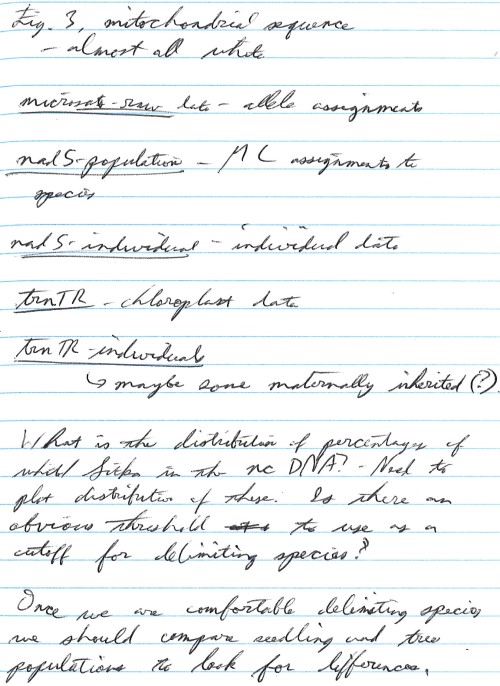 Fig. 3, mitochondrial sequence
- almost all white
microsats-raw data - allele assignments
nad5-population - ML assignments to
species
nad5-individual - individual data
trnTR - chloroplast data
trnTR-individuals
↳ maybe some maternally inherited (?)
What is the distribution of percentages of
white Sitka in the nc DNA? - Need to
plot distribution of these. Is there an
obvious threshold to use as a
cutoff for delimiting species?
Once we are comfortable delimiting species
we should compare seedling and tree
populations to look for differences.